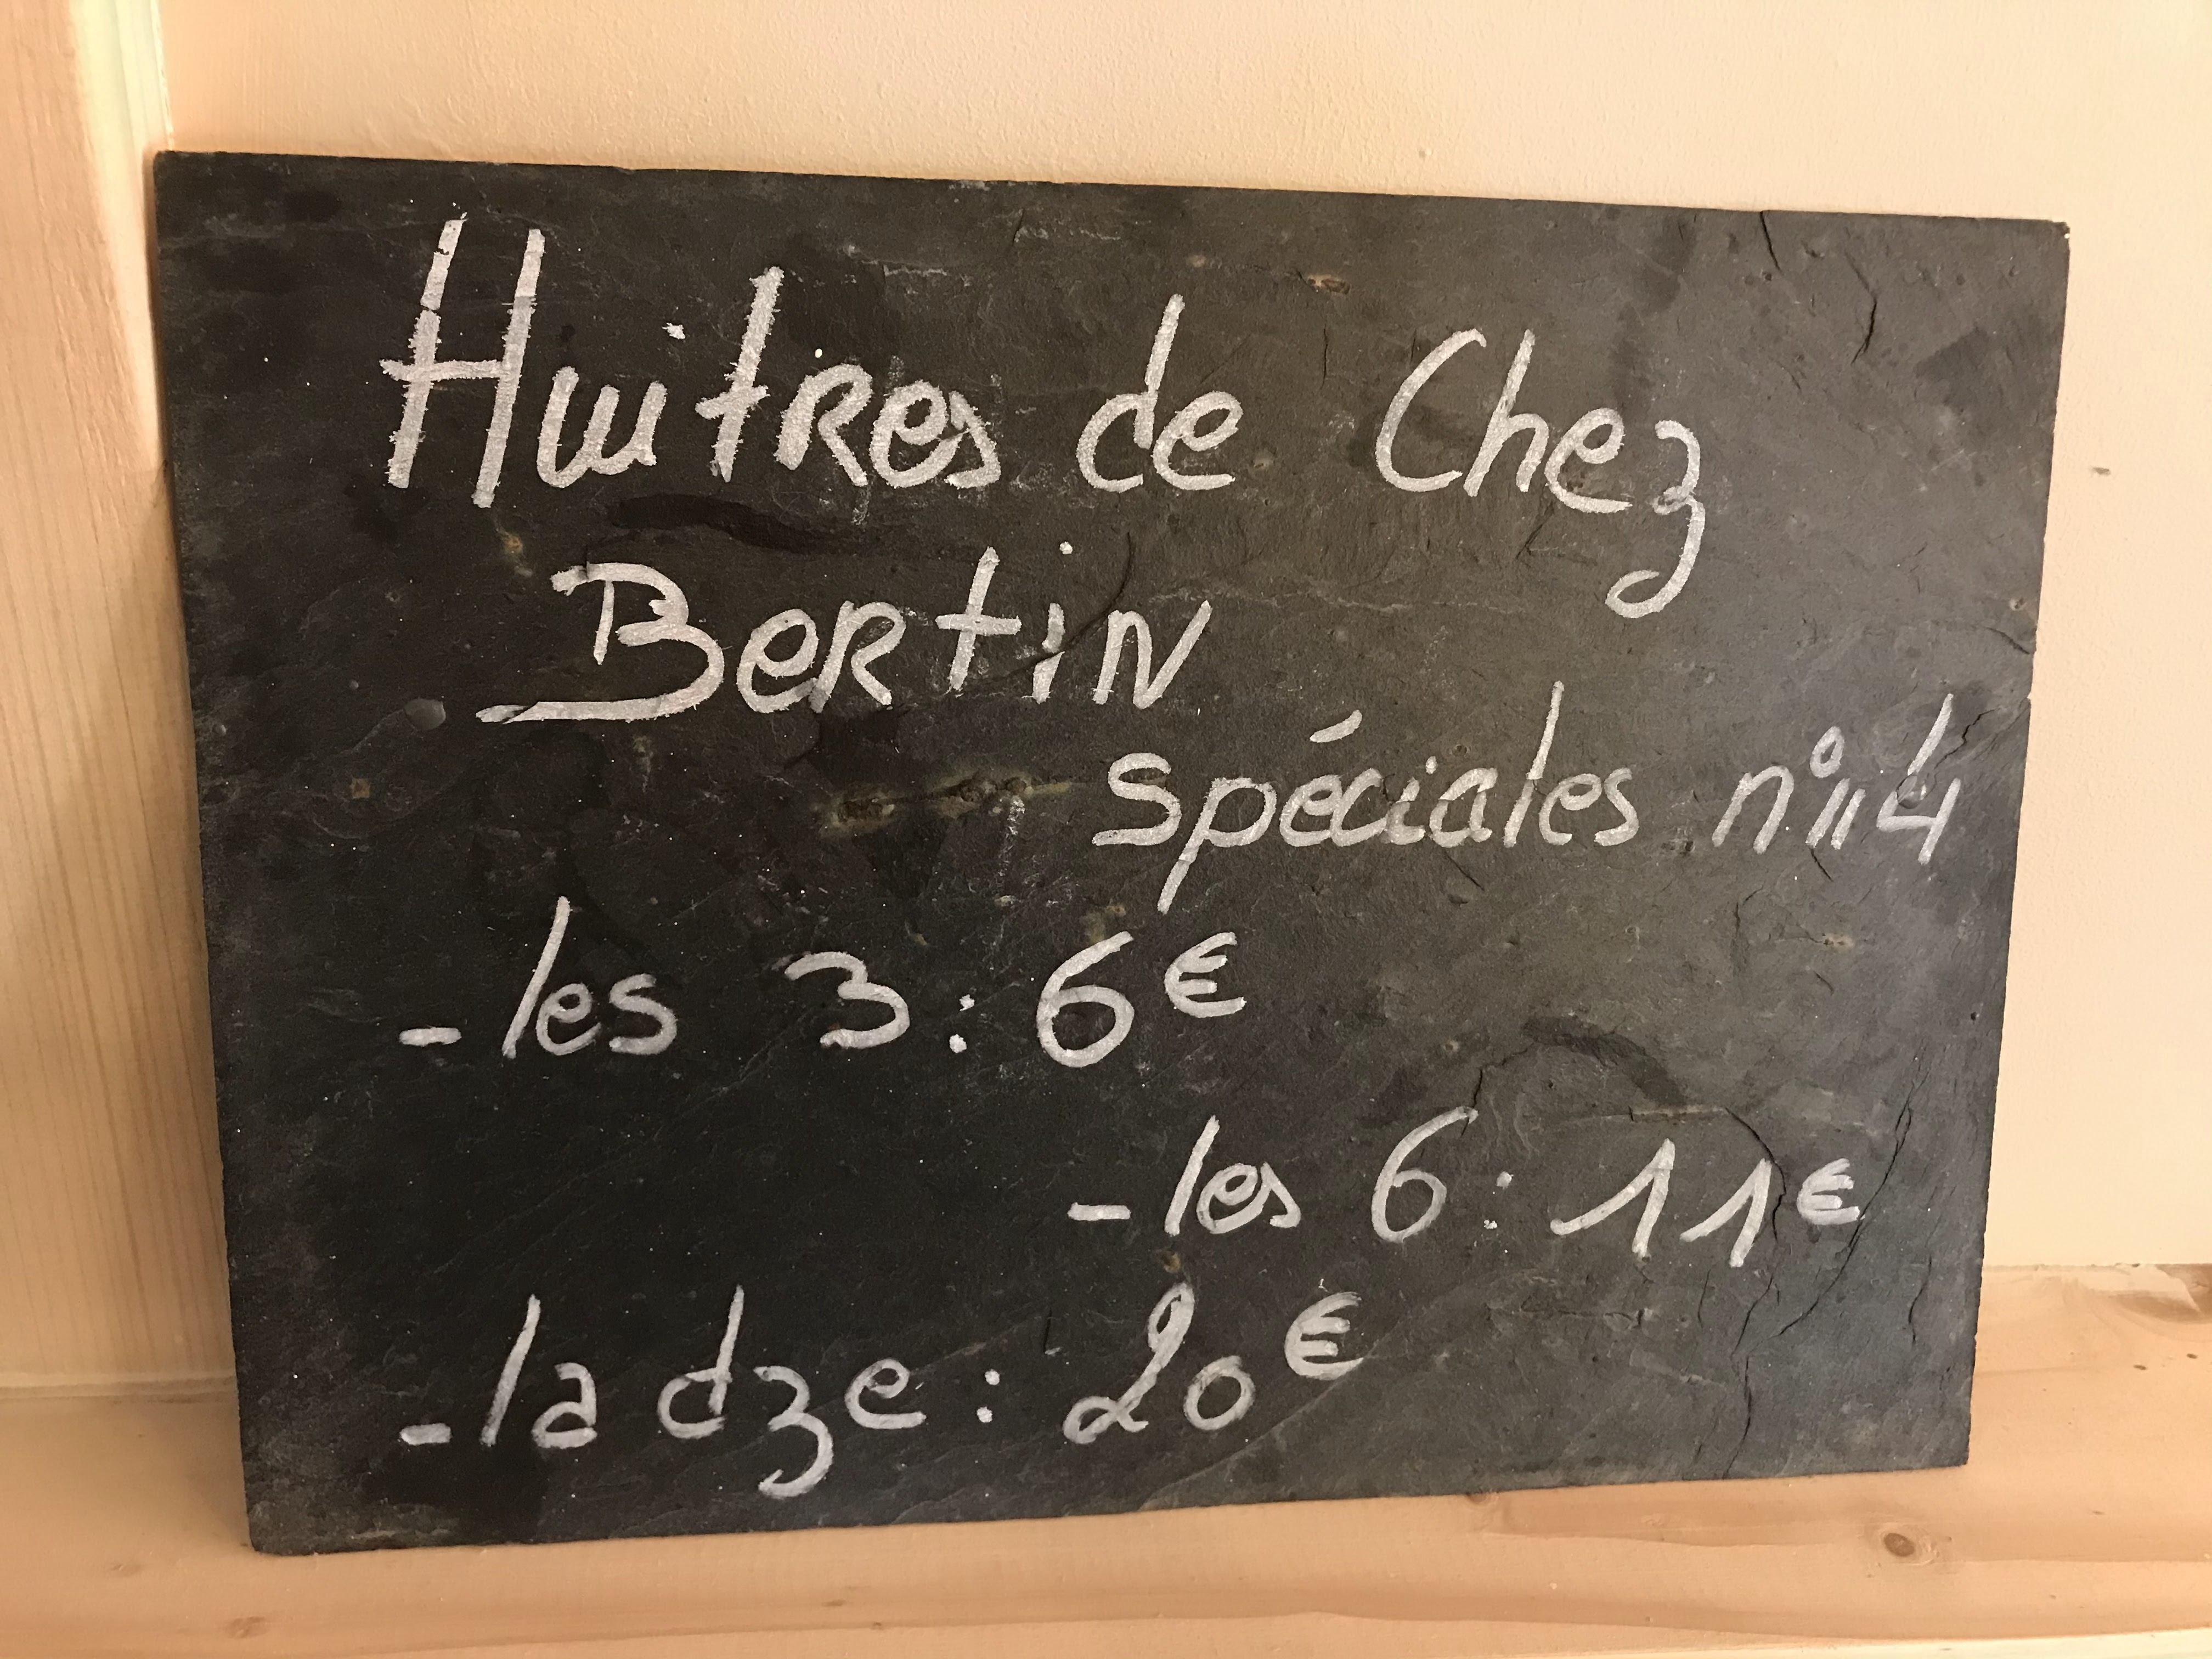 Huitres de Chez
Bertin
spéciales n° 4
- les 3 : 6€
- les 6 : 11€
- la dze : 20€